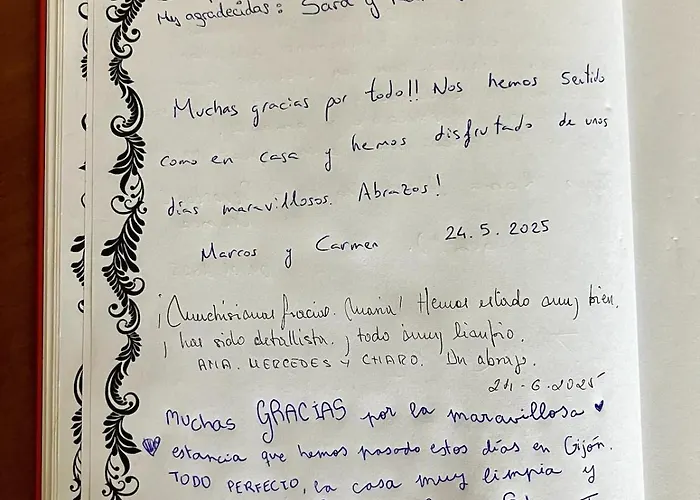 Muy agradecidas: Sara y
Muchas gracias por todo!! Nos hemos sentido
como en casa y hemos disfrutado de unos
días maravillosos. Abrazos!
Marcos y Carmen 24.5.2025
¡Muchísimas gracias. María! Hemos estado muy bien.
y has sido detallista. y todo muy limpio.
ANA. MERCEDES Y CHARO. Un abrazo.
24-6-2025
Muchas GRACIAS por la maravillosa
estancia que hemos pasado estos días en Gijón.
TODO PERFECTO, la casa muy limpia y